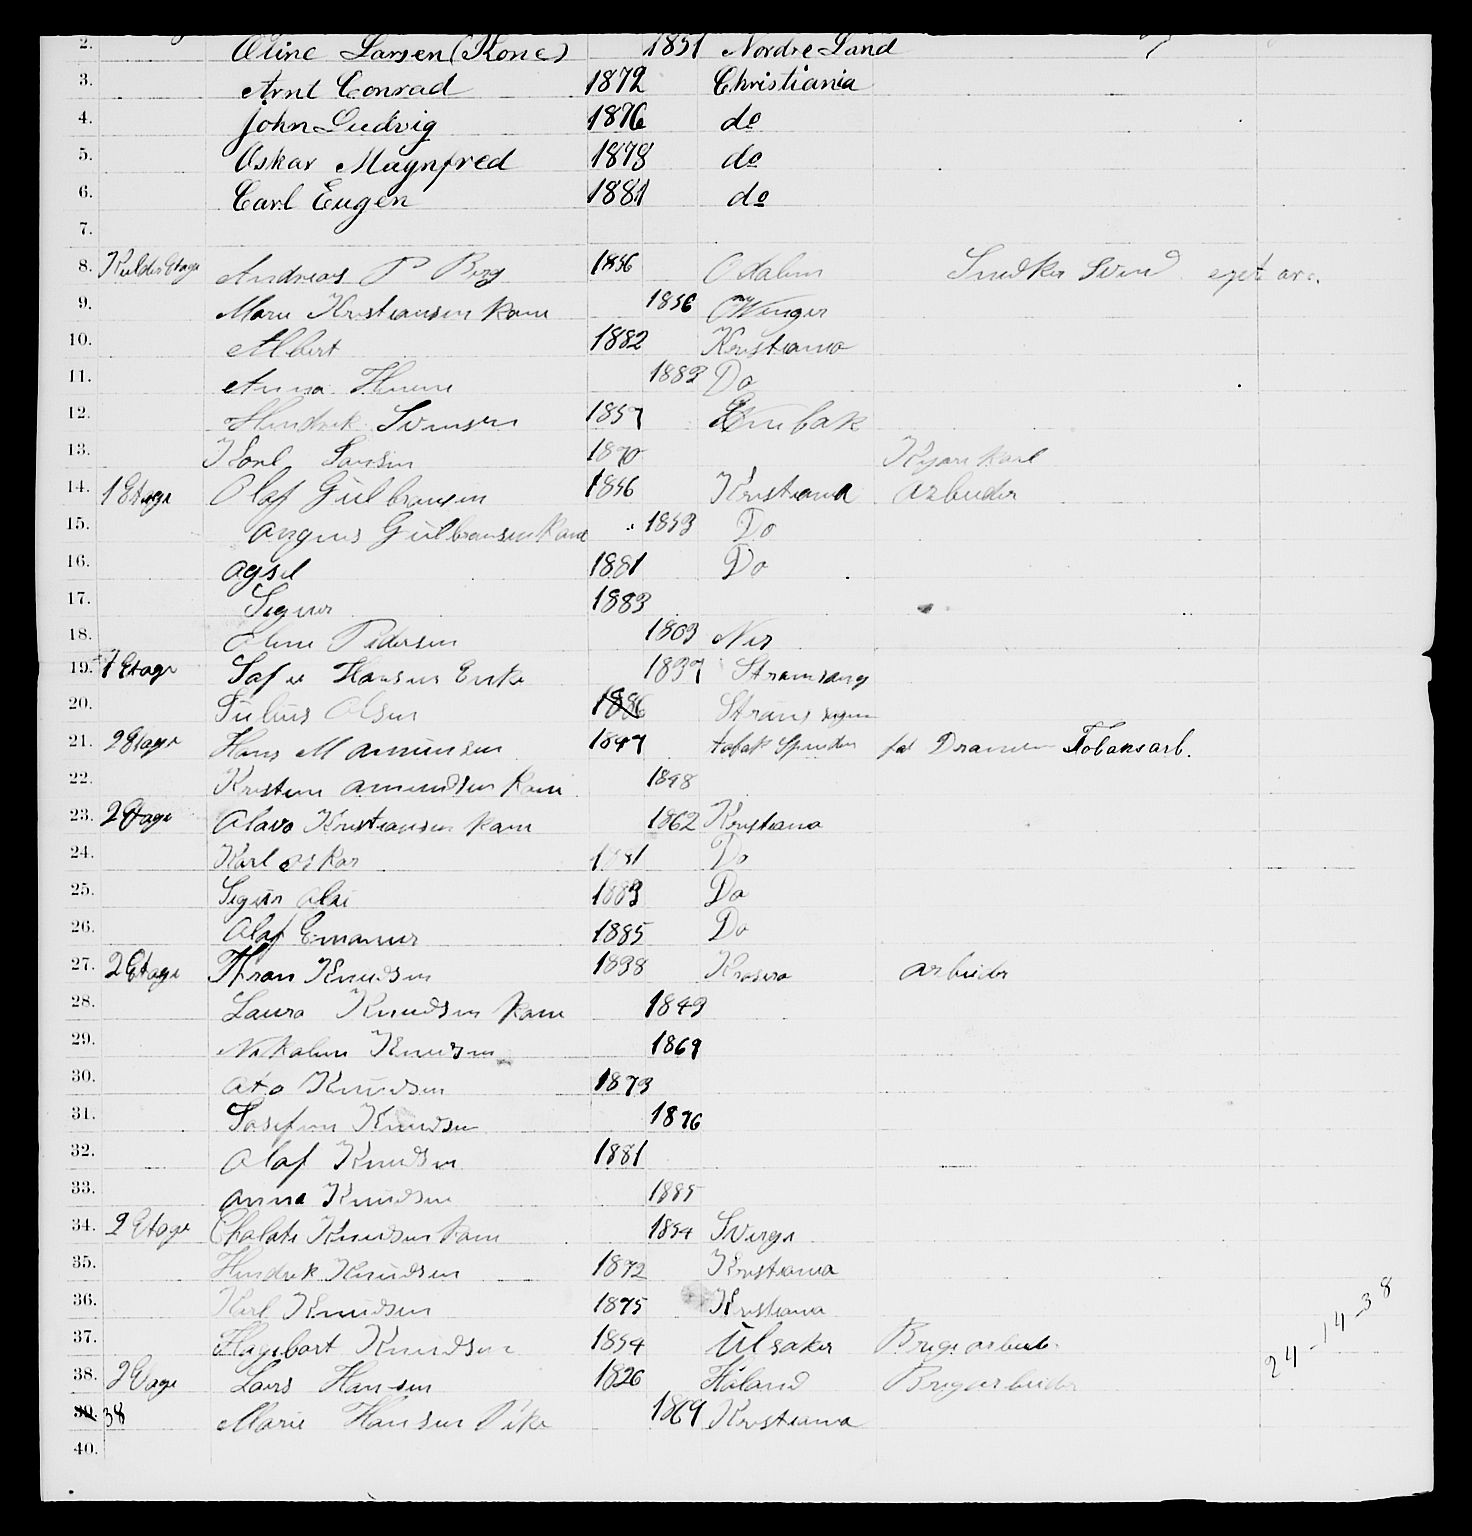 2. Oline Larsen (Kone) 1851 Nordre Land
3. Arnt Conrad 1872 Christiania
4. John Ludvig 1876 do
5. Oskar Magnfred 1878 do
6. Carl Eugen 1881 do
7.
8. Kelder Etage Andreas P Berg 1856 Odalen Snedker Svend eget
9. Marie Kristiansen Kone 1856 Winger
10. Albert 1882 Kristiania
11. Anna 1883 Do
12. Hendrek Svensen 1857 Enebak
13. Karl 1870
14. 1 Etage Olaf Gulbransen 1856 Kristiania arbeider
15. Gulbransen Kone 1853 Do
16. agsel 1881 Do
17. Sigur 1883
18. Oline Pedersen 1803
19. 1 Etage Sofie Hansen Enke 1837
20. Julius Olsen
21. 2 Etage Hans M amunsen 1847 Dramen Tobaksarb.
22. Kristine amundsen Kone 1848
23. 2 Etage Olava Kristiansen Kone 1862 Kristiana
24. Karl oskar Do
25. Sigur 1883 Do
26. Olaf Emanuer 1885 Do
27. 2 Etage Knudsen 1838 arbeider
28. Laura Knudsen Kone 1843
29. Nikoline Knudsen 1869
30. Oto Knudsen 1873
31. Josefine Knudsen 1876
32. Olaf Knudsen 1881
33. anna Knudsen 1885
34. 2 Etage Knudsen Kone 1854 Sverge
35. Hendrek Knudsen 1872 Kristiania
36. Karl Knudsen 1875 Kristiana
37. Hagebart Knudsen 1854 Ulsaker
38. 2 Etage Lars Hansen 1826 Håland
39. 38 Marie Hansen Pike 1869 Kristiana
40.
24-14-38